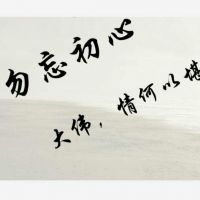 勿忘初心
大伟，情何以堪